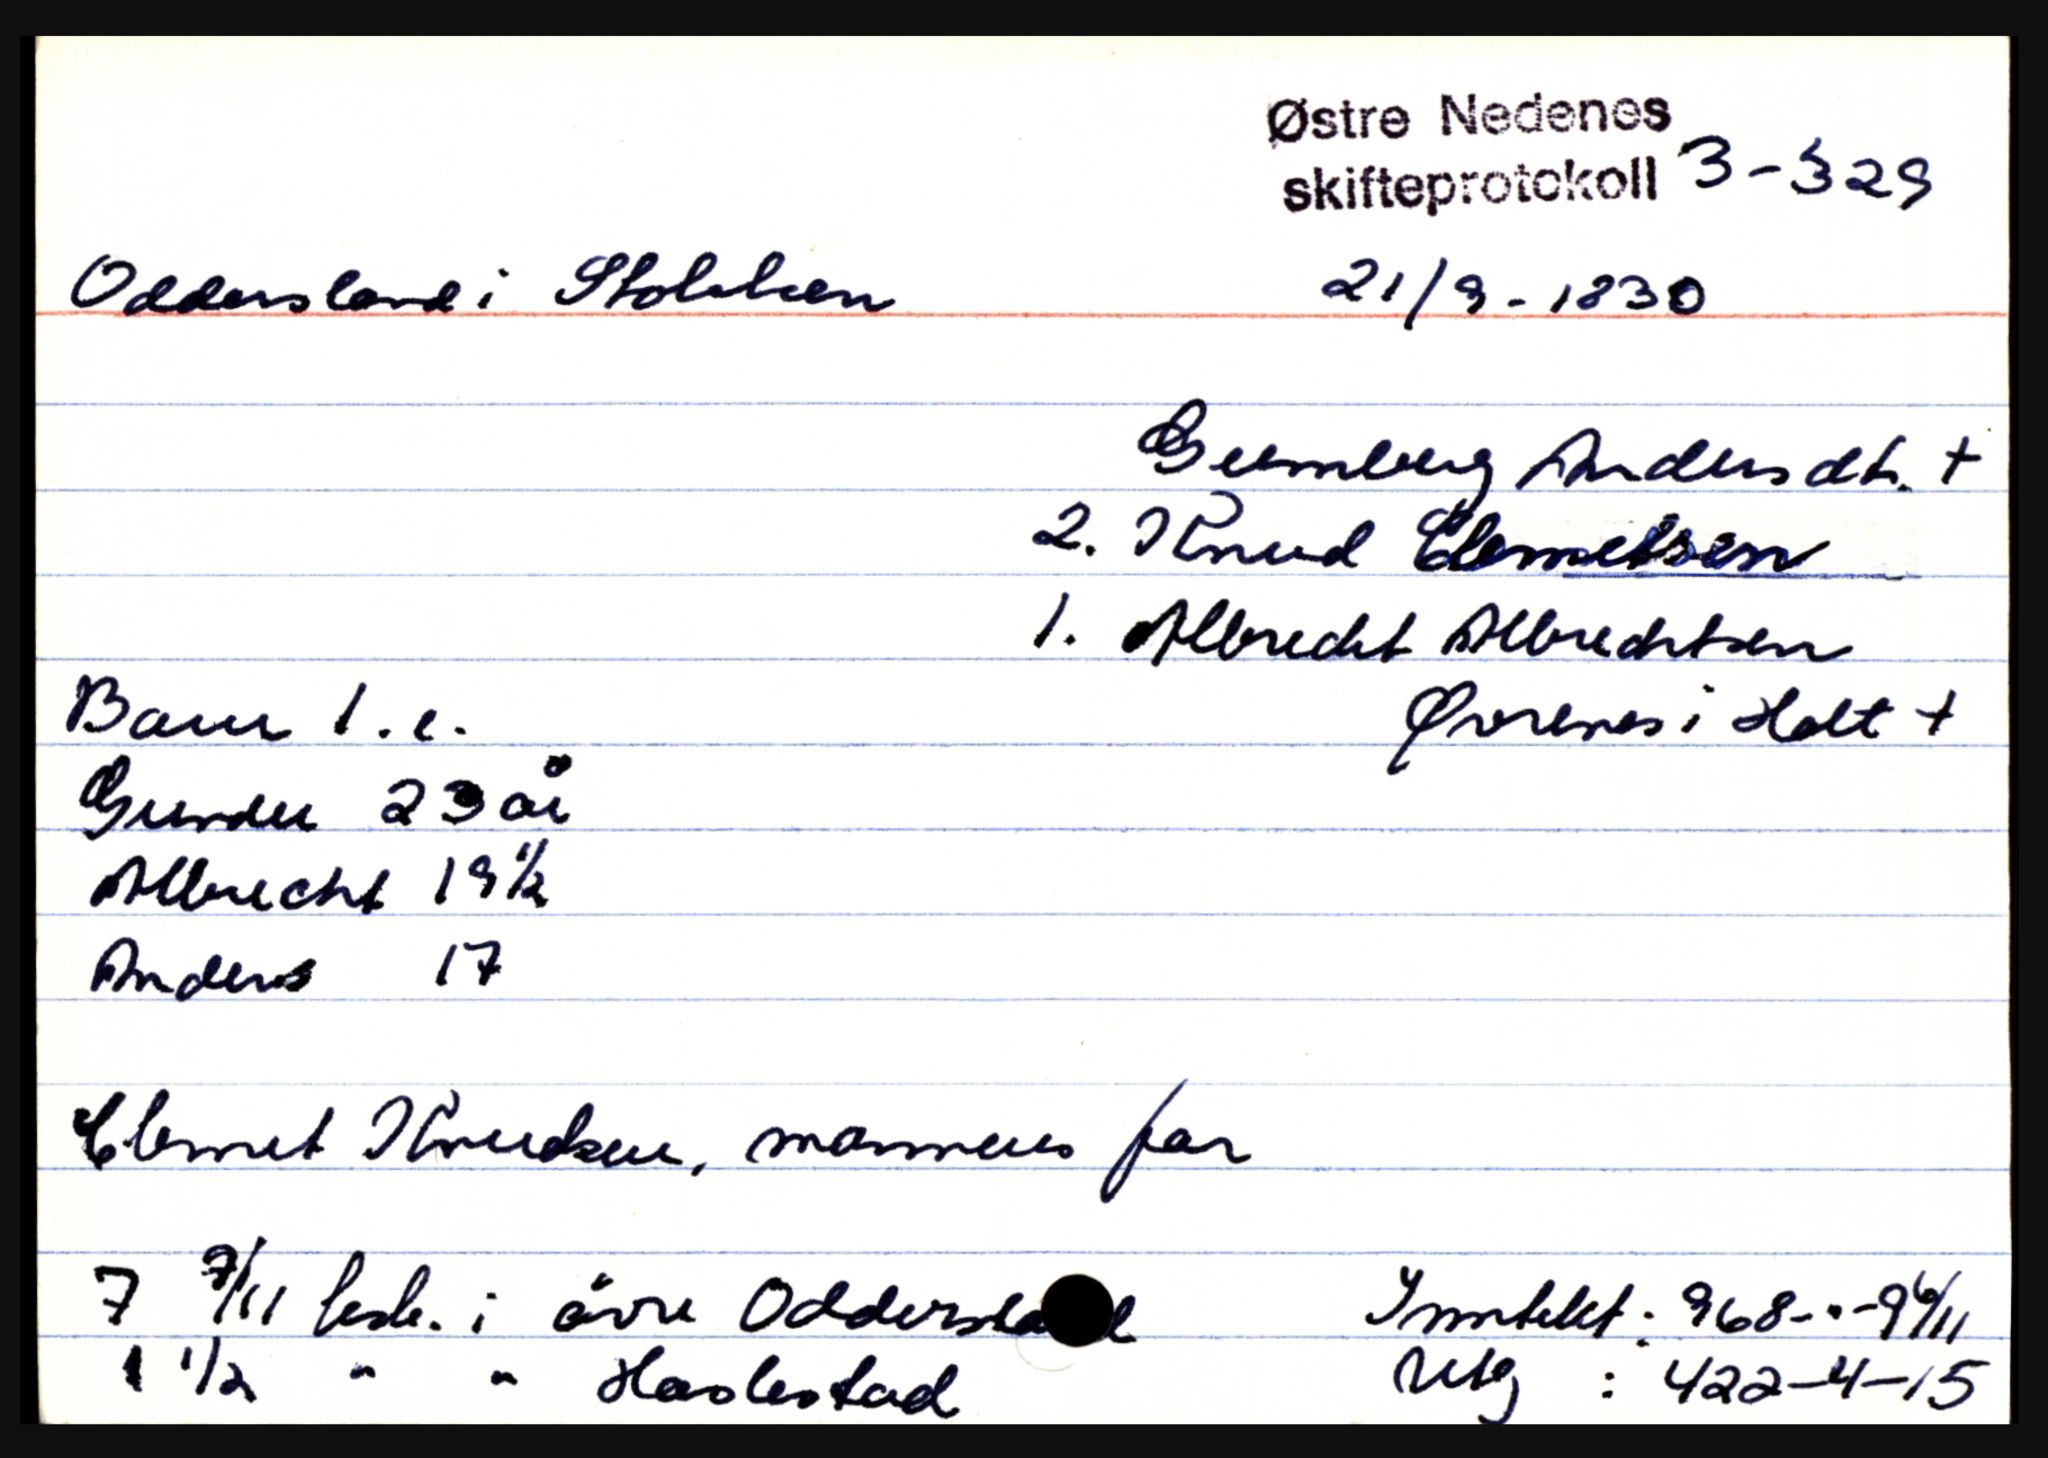 Østre Nedenes
skifteprotokoll 3-329
Oddersland i Stokken 21/9-1830
Gumborg Andersdt. +
2. Knud Clemetsen
1. Albrecht Albrechtsen
Øvrenes i Holt +
Barn 1.e.
Gunder 23 år
Albrecht 19 1/2
Anders 17
Clemet Knudsen, mannens far
7 7/11 lesk. i övre Oddersland Inntekt: 968-"-9 6/11
1 1/2 " " Haslestad Utg : 422-4-15